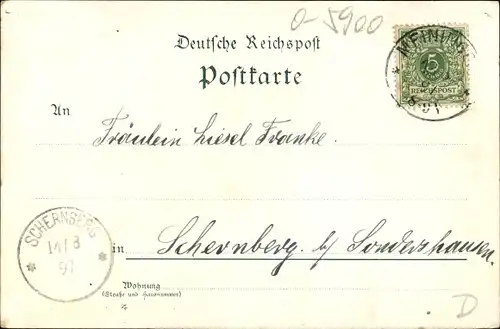 o-5900
Deutsche Reichspost
Postkarte
5
REICHSPOST
97
An
Fräulein Liesel Franke.
SCHERNBERG
14/8
97
in Schernberg b/ Sondershausen.
Wohnung
(Straße und Hausnummer)
D